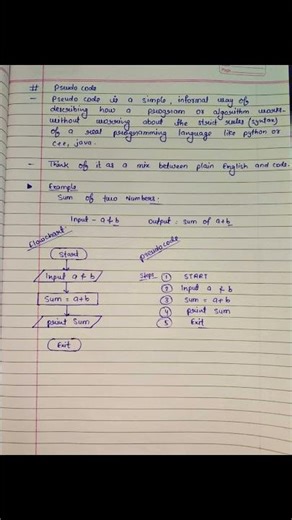 # Pseudo code
- Pseudo code is a simple, informal way of
describing how a program or algorithm works
without worring about the strict rules (syntax)
of a real programming language like python or
c++, java.
- Think of it as a mix between plain English and code.
Example
Sum of two Numbers.
Input - a & b Output : sum of a+b
flowchart
Start
Input a & b
Sum = a+b
print Sum
Exit
pseudocode
Steps 1 START
2 Input a & b
3 Sum = a+b
4 print Sum
5 Exit